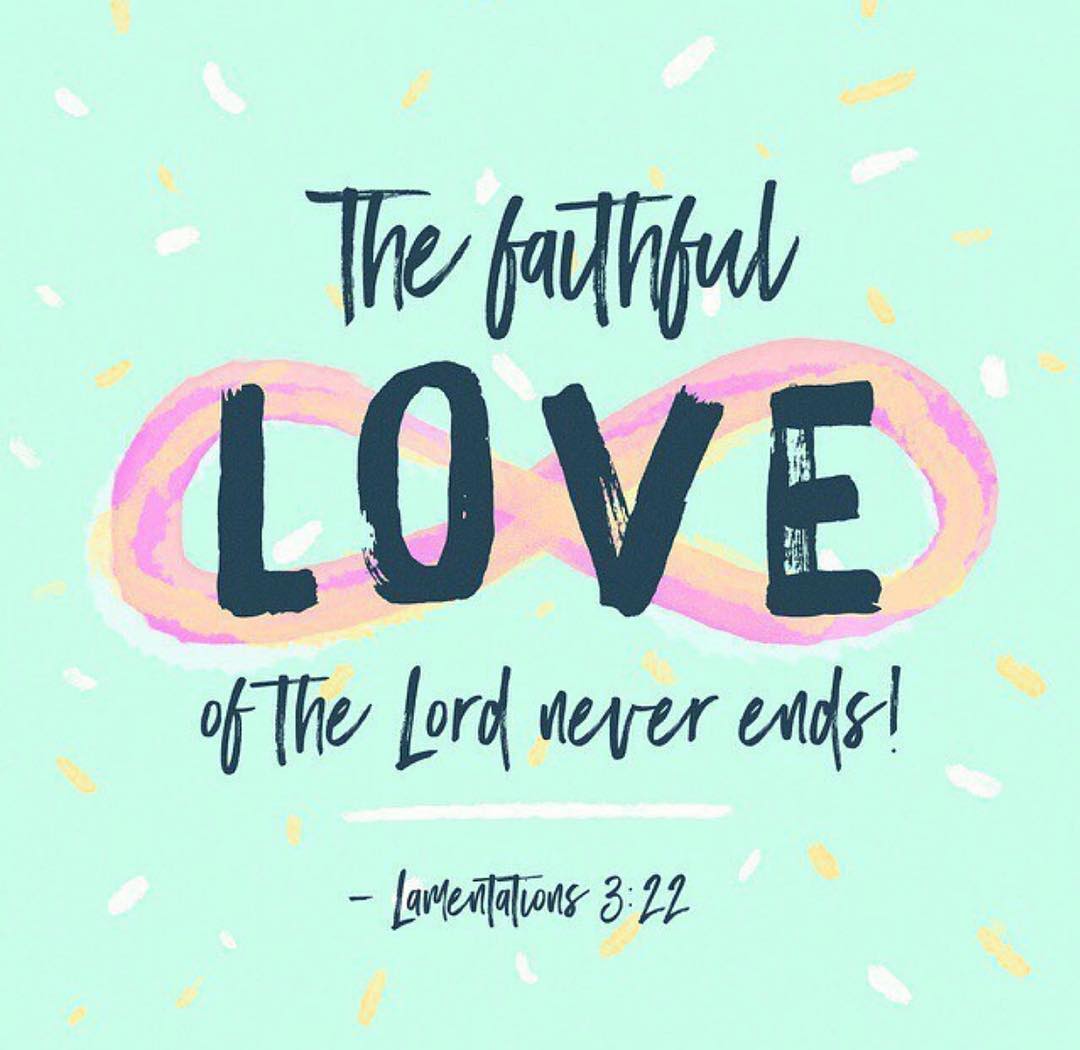 The faithful
LOVE
of the Lord never ends!
- Lamentations 3:22